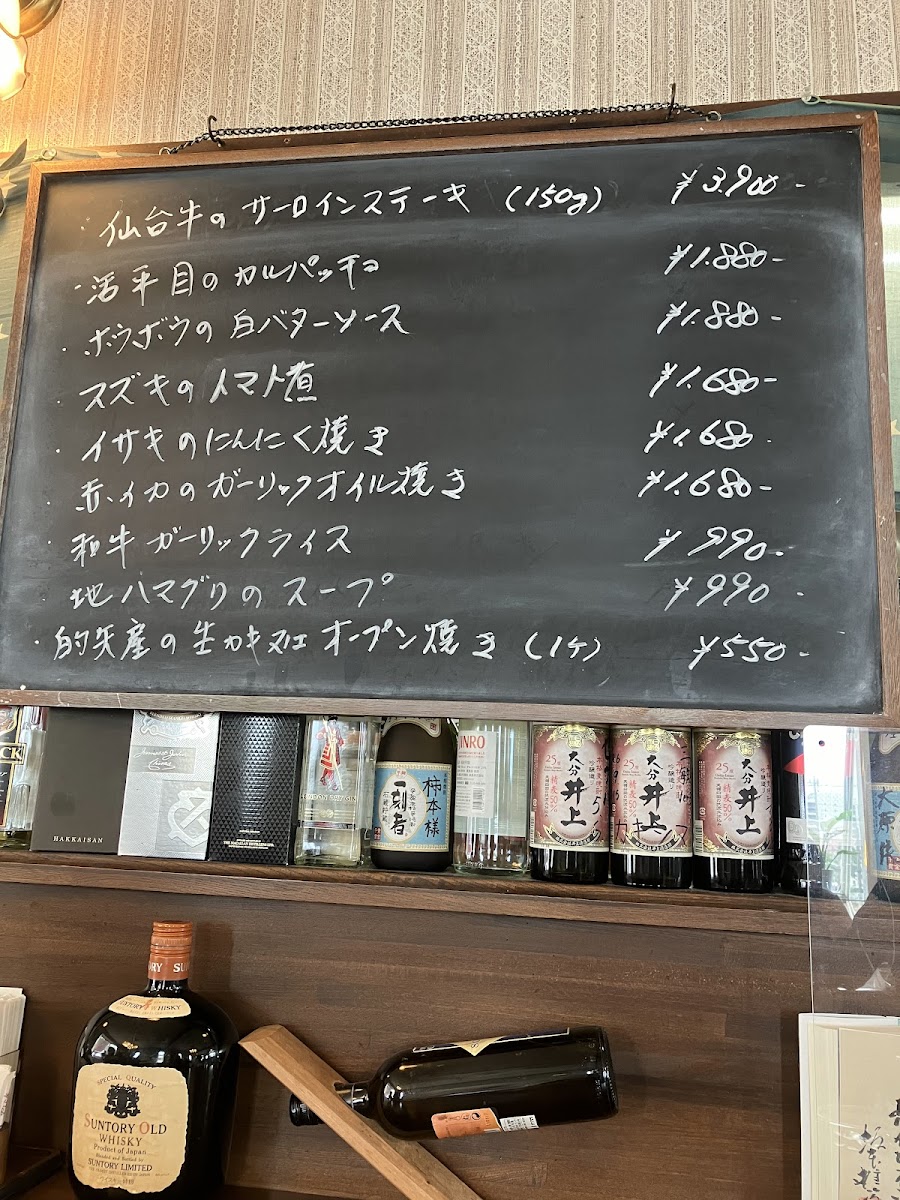 ・仙台牛のサーロインステーキ (150g) ¥3.900-
・活平目のカルパッチョ ¥1.880-
・ホウボウの白バターソース ¥1.880-
・スズキのトマト煮 ¥1.680-
・イサキのにんにく焼き ¥1.680-
・赤イカのガーリックオイル焼き ¥1.680-
・和牛ガーリックライス ¥990-
地ハマグリのスープ ¥990-
・的矢産の生カキ オーブン焼き (1ケ) ¥550-
HAKKAISAN
柿本様
一刻者
INRO
25度
大分
井上
精麦50%
25度
大分
井上
精麦50%
25度
大分
井上
精麦50%
SUNTORY WHISKY
SPECIAL QUALITY
SUNTORY OLD
WHISKY
Product of Japan
SUNTORY LIMITED